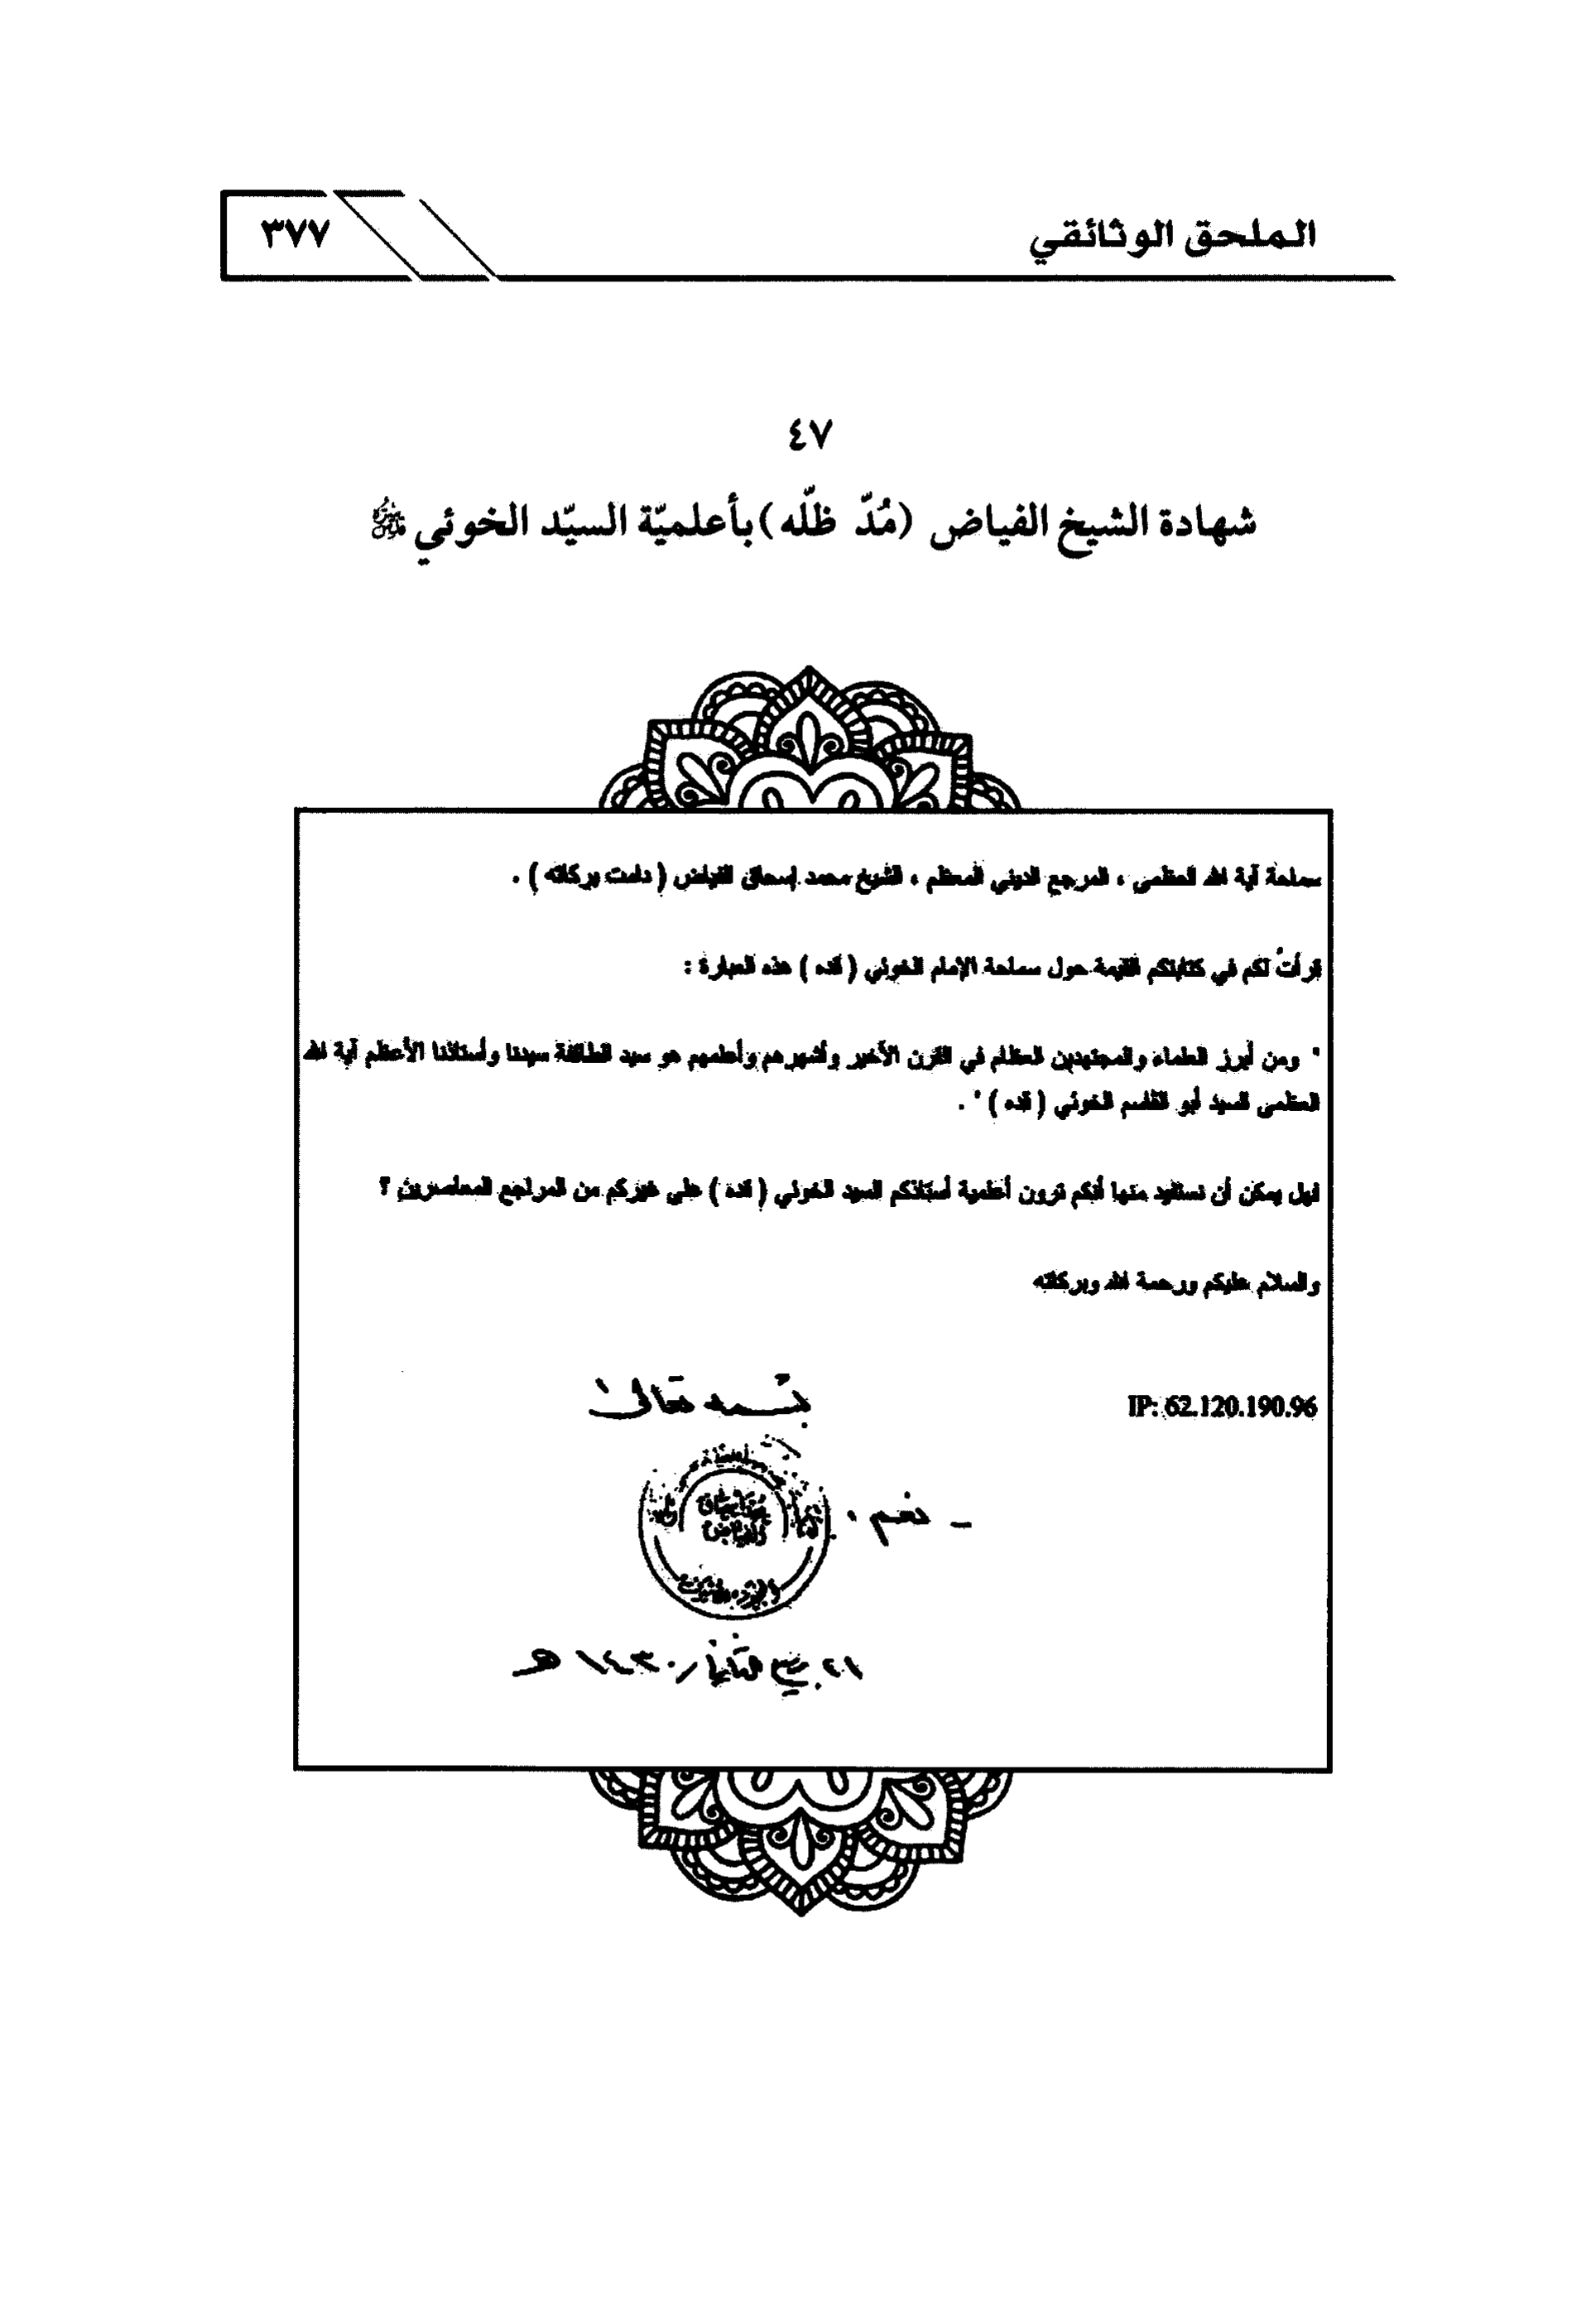 الملحق الوثائقي
٣٧٧
٤٧
شهادة الشيخ الفياض (مُدّ ظلّه) بأعلميّة السيّد الخوئي
سماحة آية الله العظمى ، المرجع الديني المعظم ، الشيخ محمد إسحاق الفياض ( دامت بركاته ) .
قرأتُ لكم في كتابتكم القيمة حول سماحة الإمام الخوئي ( قده ) هذه العبارة :
" ومن أبرز العلماء والمجتهدين العظام في القرن الأخير وأشهرهم وأعلمهم هو سيد الطائفة سيدنا وأستاذنا الأعظم آية الله
العظمى السيد أبو القاسم الخوئي ( قده ) " .
فهل يمكن أن نستفيد منها أنكم ترون أعلمية أستاذكم السيد الخوئي ( قده ) على غيركم من المراجع المعاصرين ؟
والسلام عليكم ورحمة الله وبركاته
IP: 62.120.190.96
بسمه تعالى
- نعم .
محمد إسحاق
الفياض
النجف الأشرف
٢١ ربيع الثاني / ١٤٣٠ هـ